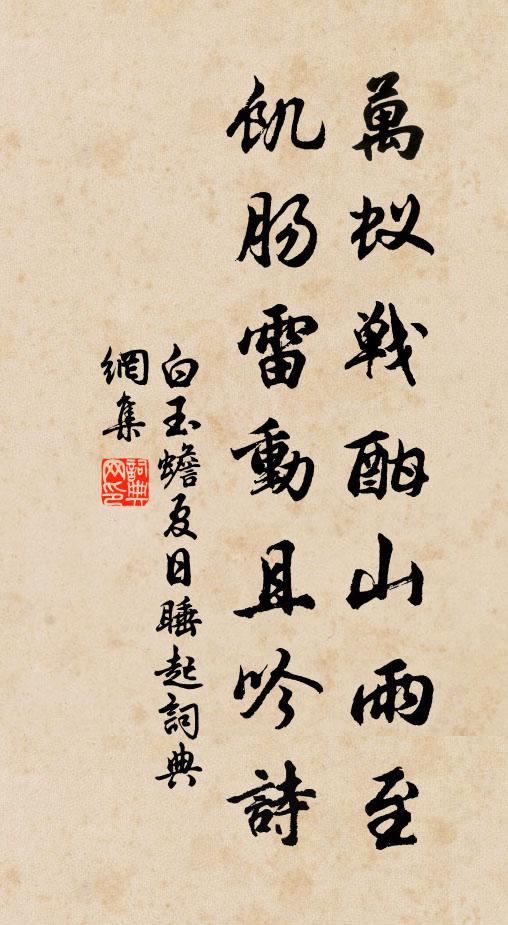 萬蚁戦酣山雨至
飢肠雷動且吟詩
白玉蟾夏日睡起詞典
網集
詞典網印